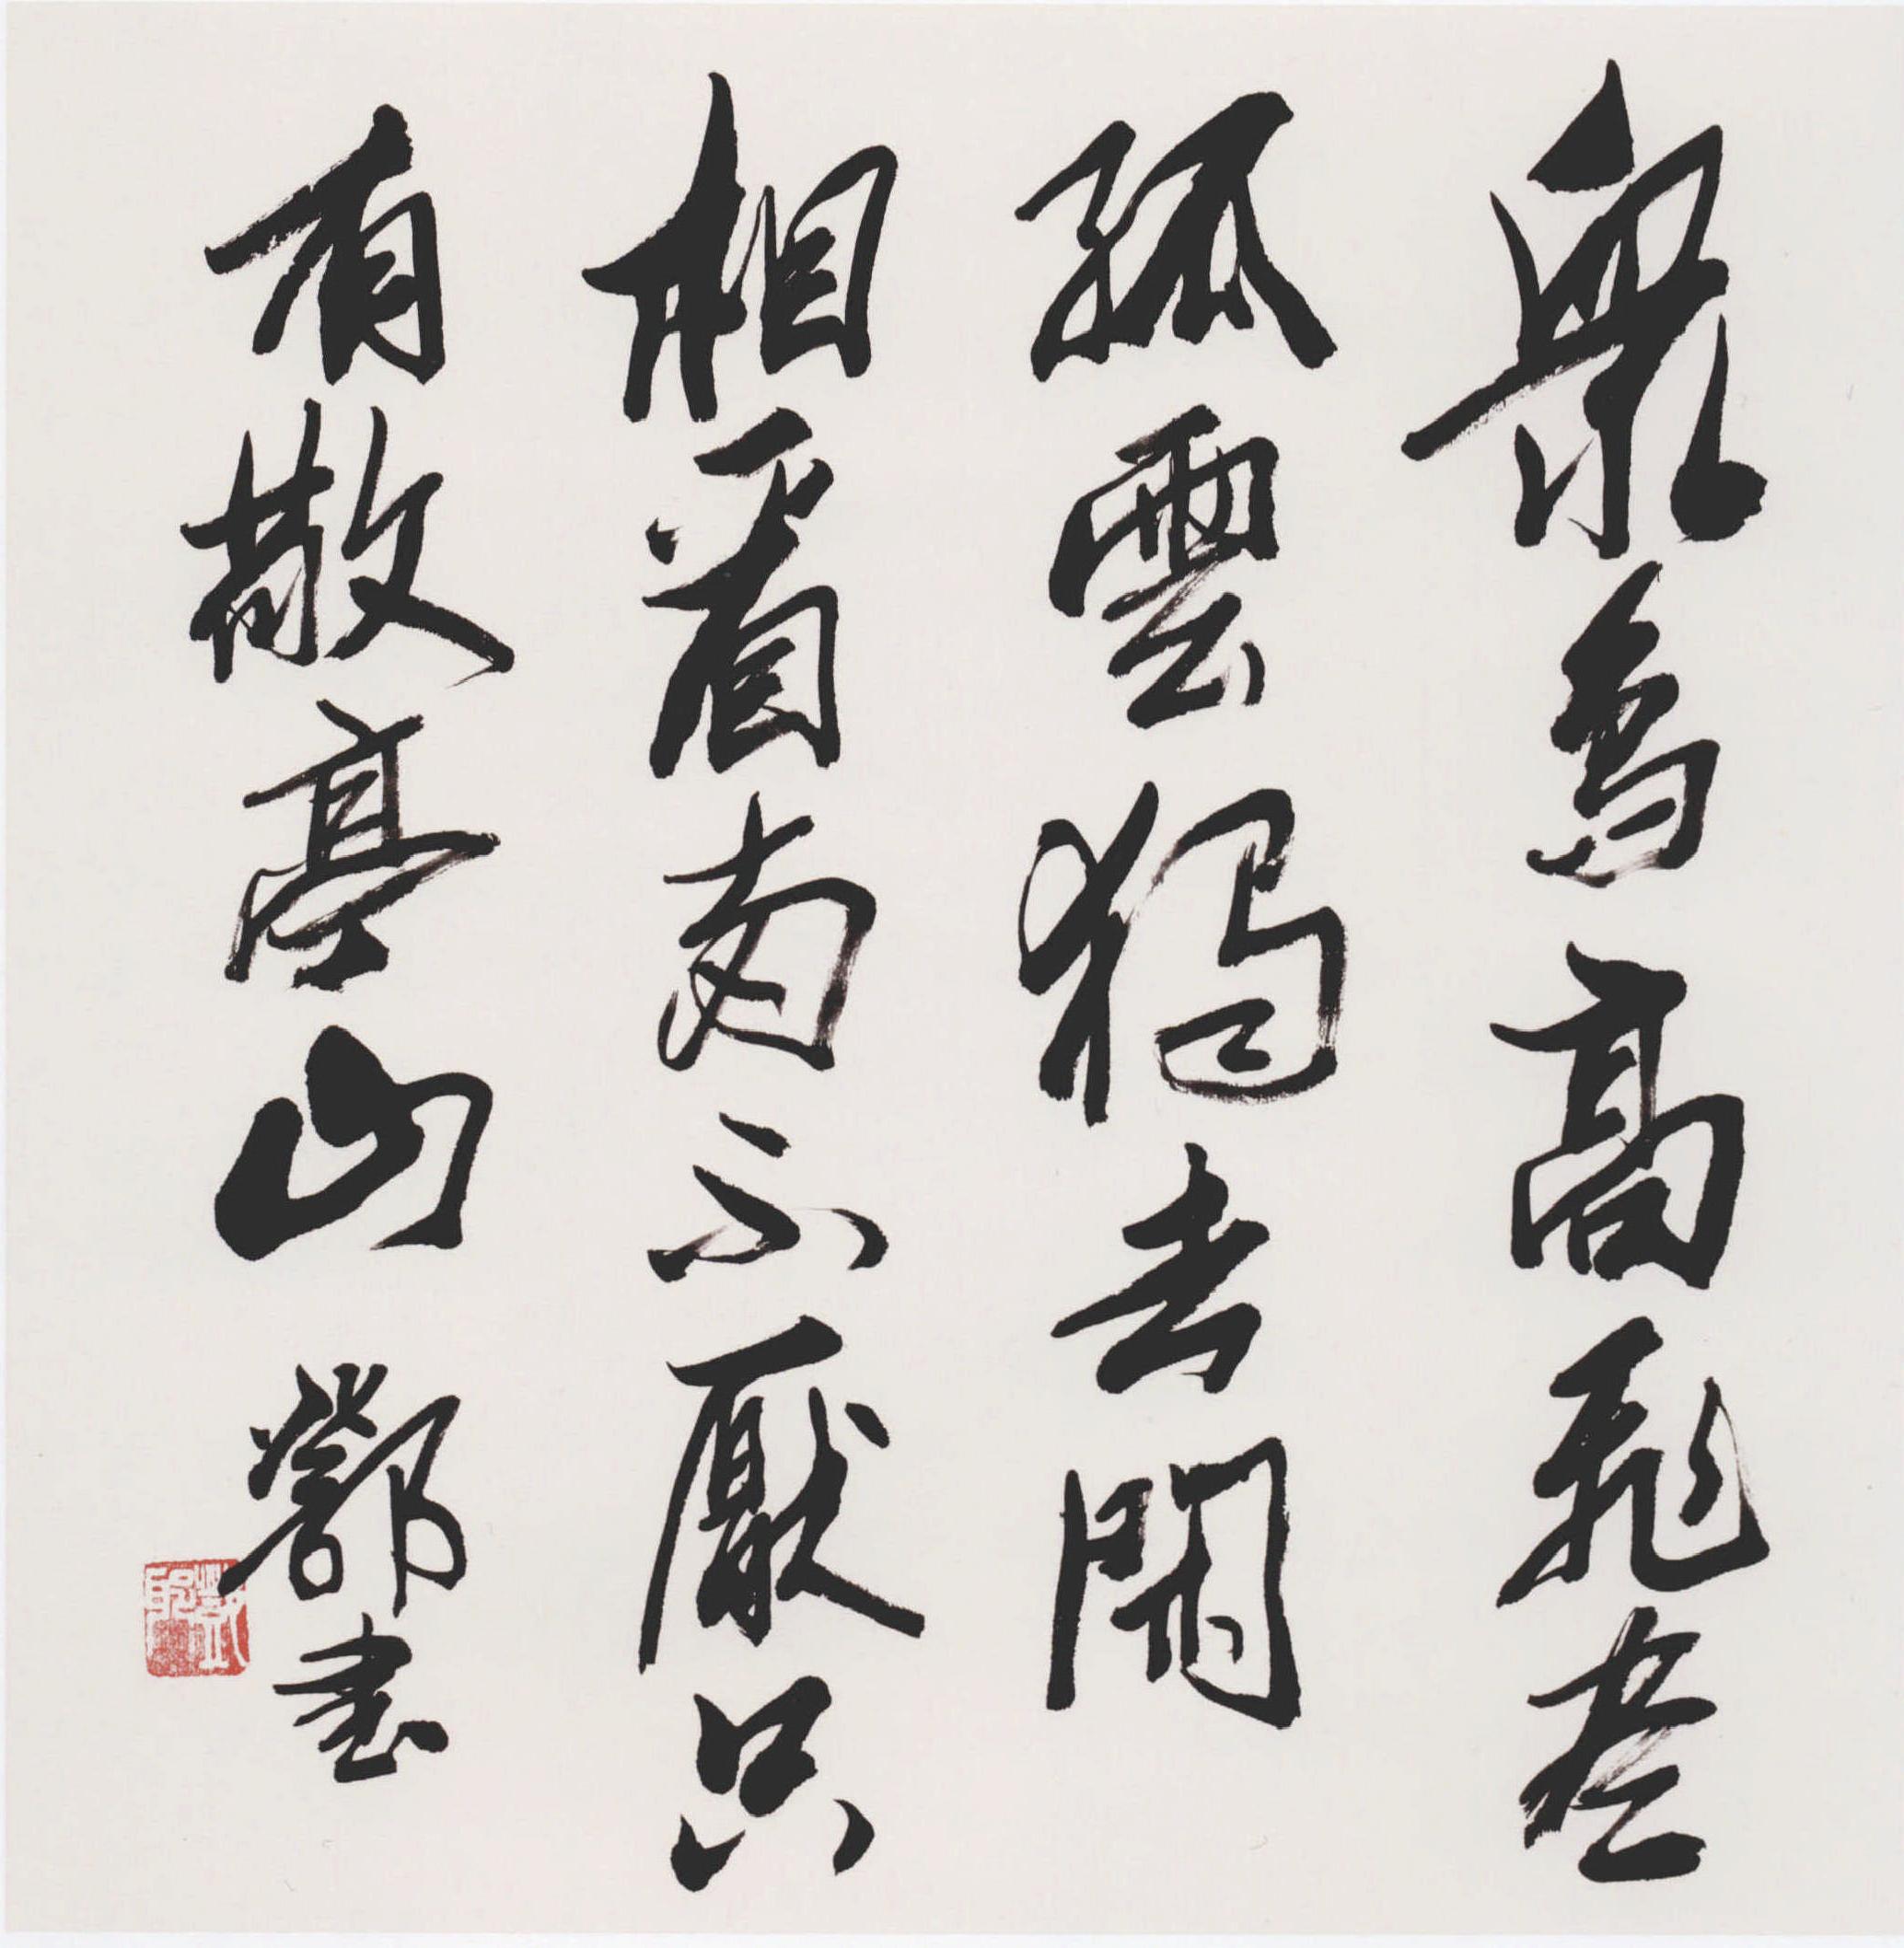 衆鳥高飛盡
孤雲獨去閑
相看兩不厭只
有敬亭山 鄧書